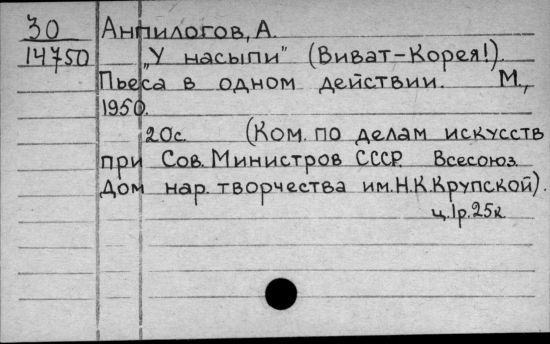 30 Анпилогов, А.
14750 „У насыпи" (Виват-Корея!).
Пьеса в одном действии. М.,
1950.
20с. (Ком. по делам искусств
при Сов. Министров СССР. Всесоюз.
Дом нар. творчества им. Н.К.Крупской).
ц. 1р. 25к.